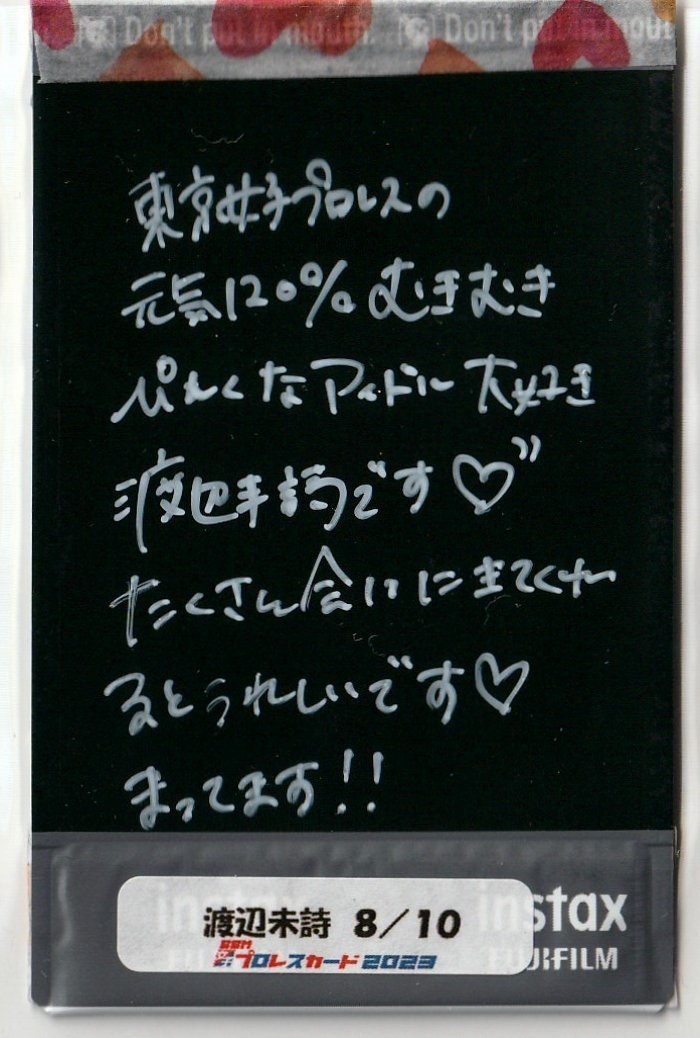 Don't put in mouth. Don't put in mout
東京女子プロレスの
元気120%むきむき
ぱわくなアイドル大好き
渡辺未詩です♡
たくさん会いにきてくれ
るとうれしいです♡
まってます!!
instax instax
FUJIFILM
渡辺未詩 8/10
BBM プロレスカード2023